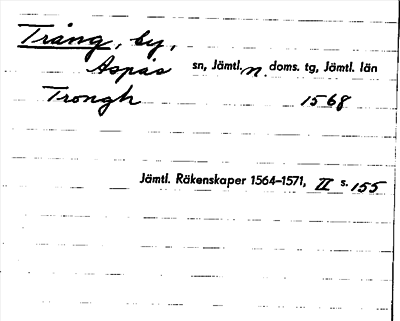 Trång, by,
Aspås sn, Jämtl. n. doms. tg, Jämtl. län
Trongh 1568
Jämtl. Räkenskaper 1564–1571, II s. 155